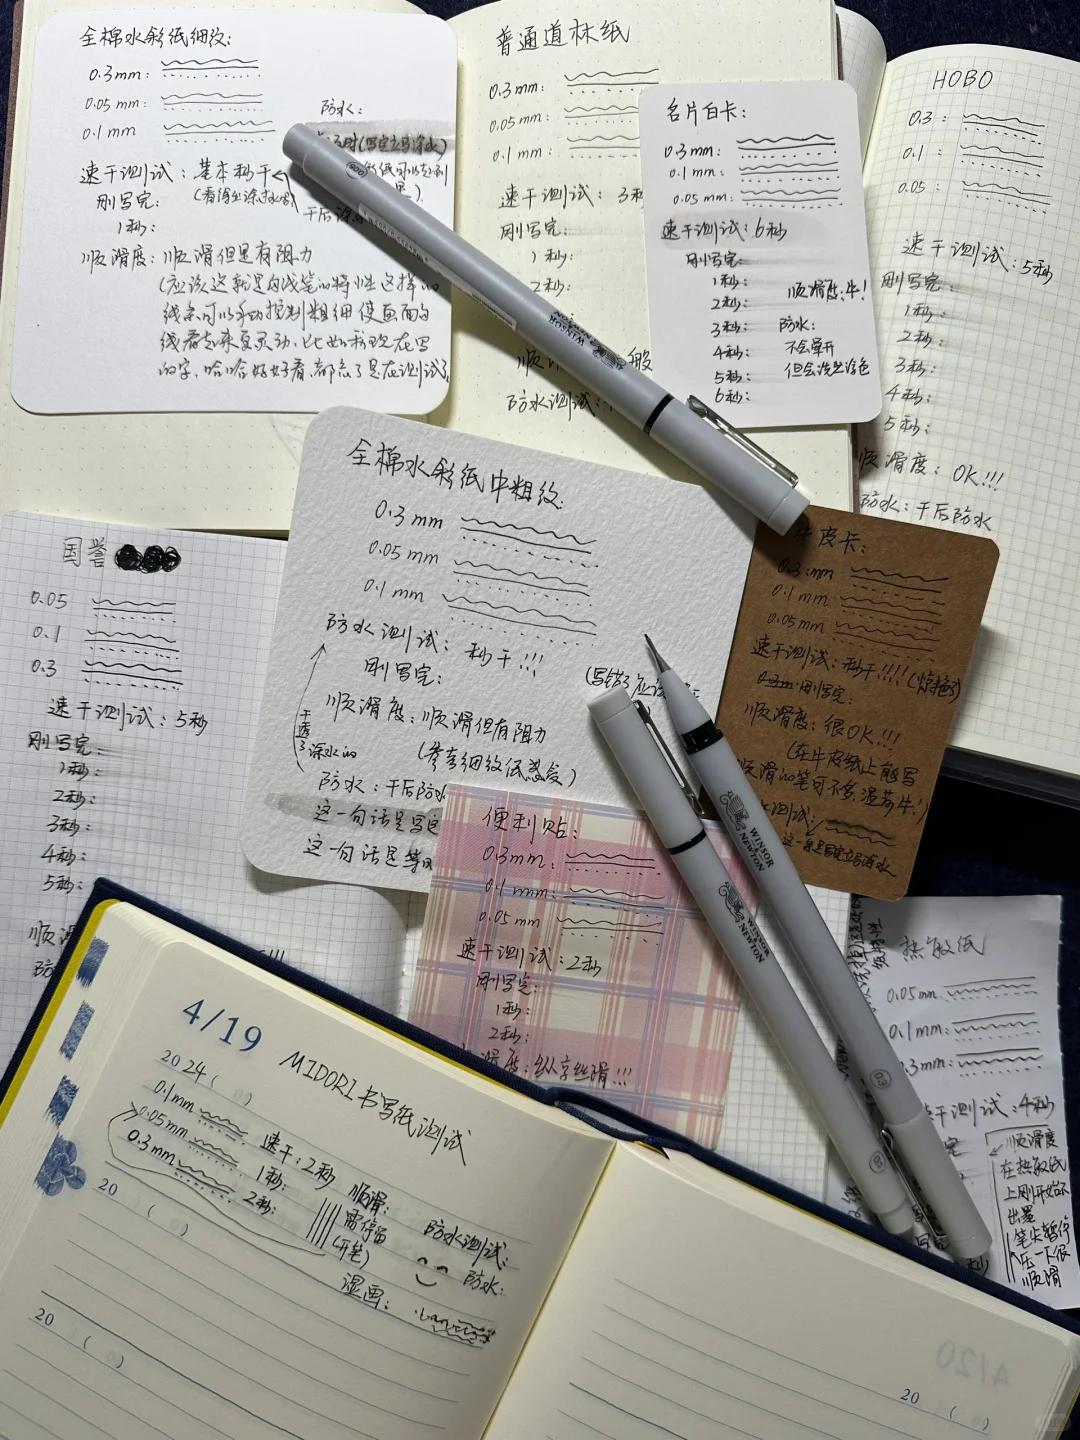 全棉水彩纸细纹:
0.3mm:
0.05mm:
0.1mm
防水:
速干测试: 基本秒干
刚写完:
1秒:
顺滑度: 顺滑但是有阻力
(应该这就是勾线笔的特性 这样的
线条可以手动控制粗细 使画面的
线看起来更灵动, 比如我现在写
的字, 哈哈好好看, 都忘了是在测试了
普通道林纸
0.3mm:
0.05mm:
0.1mm:
速干测试: 3秒
刚写完:
1秒:
2秒:
防水测试:
名片白卡:
0.3mm:
0.1mm:
0.05mm:
速干测试: 6秒
刚写完:
1秒:
2秒:
3秒:
4秒:
5秒:
6秒:
顺滑度: 牛!
防水:
不会晕开
但会洗些淡色
HOBO
0.3:
0.1:
0.05:
速干测试: 5秒
刚写完:
1秒:
2秒:
3秒:
4秒:
5秒:
顺滑度: OK!!!
防水: 干后防水
WINSOR
NEWTON
国誉
0.05
0.1
0.3
速干测试: 5秒
刚写完:
1秒:
2秒:
3秒:
4秒:
5秒:
全棉水彩纸中粗纹:
0.3mm
0.05mm
0.1mm
防水测试: 秒干!!!
刚写完:
顺滑度: 顺滑但有阻力
(参考细纹纸感受)
干透了涂水的
防水: 干后防水
这一句话是写
这一句话是等
牛皮卡:
0.3mm
0.1mm
0.05mm
速干测试: 秒干!!!! (惊艳)
刚写完:
顺滑度: 很OK!!!
(在牛皮纸上能写
顺滑的笔可不多
便利贴:
0.3mm:
0.1mm:
0.05mm
速干测试: 2秒
刚写完:
1秒:
2秒:
滑度: 纵享丝滑!!!
WINSOR
NEWTON
WINSOR
NEWTON
0.3
热敏纸
0.05mm:
0.1mm:
0.3mm:
速干测试: 4秒
顺滑度
在热敏纸
上刚开始不
出墨
笔尖暂停
压一下很
顺滑
4/19
MIDORI书写纸测试
2024 ( )
0.1mm
0.05mm
0.3mm
速干: 2秒
1秒:
2秒:
顺滑:
需停留
(开笔)
防水测试:
防水:
湿画:
20 ( )
20 ( )
20 ( )